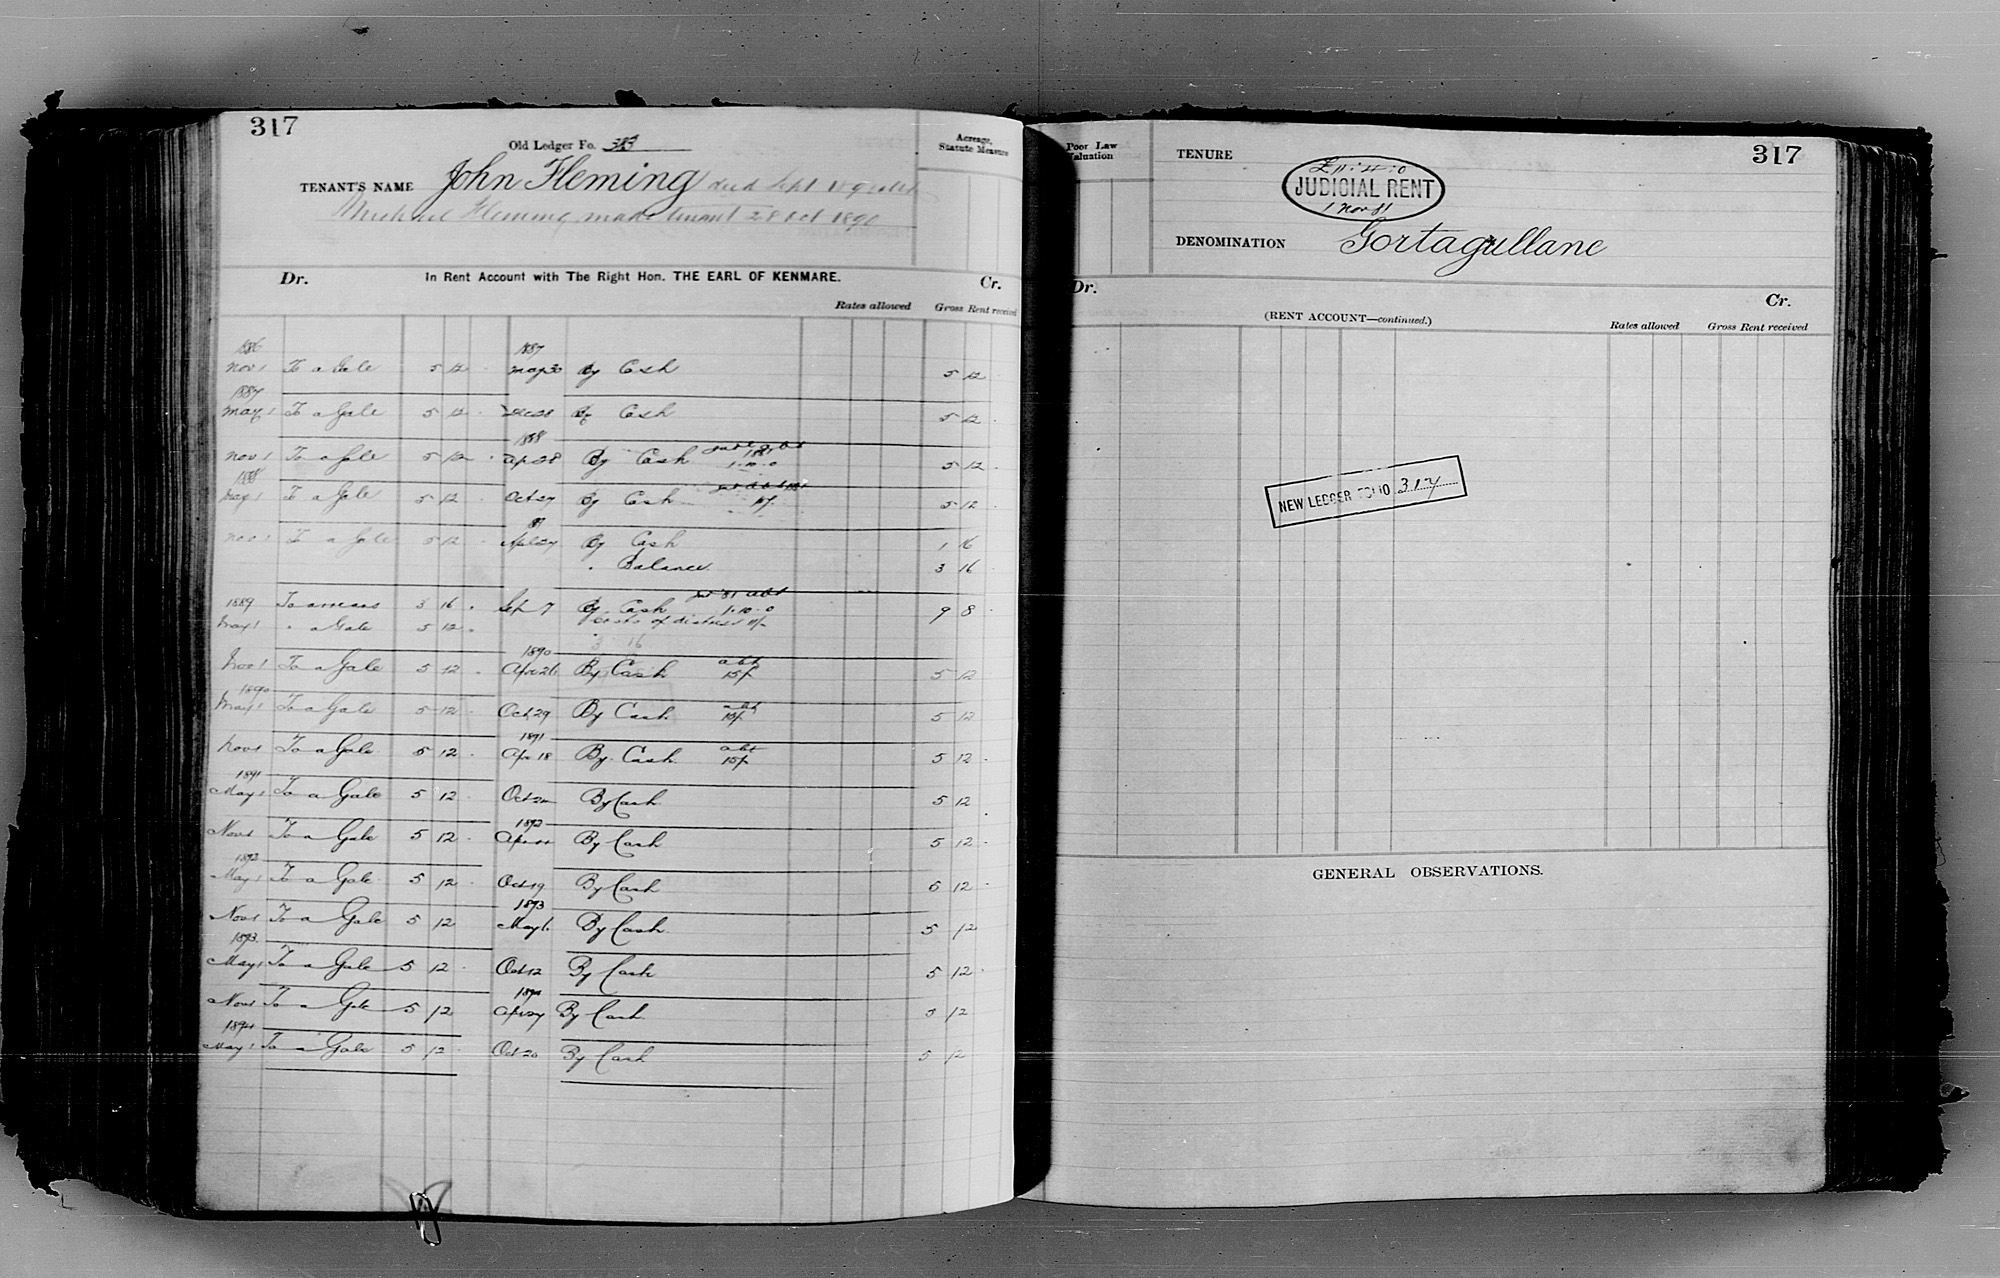 317
Old Ledger Fo. 383
Acreage, Statute Measure
TENANT'S NAME John Fleming died Sept
Michael Fleming made tenant 28 Oct 1890
Dr. In Rent Account with The Right Hon. THE EARL OF KENMARE. Cr.
Rates allowed Gross Rent received
1886 1887
Nov 1 To a Gale 5 12 . May 30 By Cash 5 12
1887
May 1 To a Gale 5 12 . Dec 28 By Cash 5 12 .
1888
Nov 1 To a Gale 5 12 . Ap 28 By Cash 1.10.0 5 12
1888
May 1 To a Gale 5 12 . Oct 27 By Cash 5 12
89
Nov 1 To a Gale 5 12 . Apl 27 By Cash 1 16
" Balance 3 16
1889 To arrears 3 16 . Sep 7 By Cash 1.10.0 9 8 .
May 1 " a Gale 5 12 . Costs of distress
3 16
1890
Nov 1 To a Gale 5 12 . Apr 26 By Cash abt 15/- 5 12
1890
May 1 To a Gale 5 12 . Oct 29 By Cash abt 15/- 5 12
1891
Nov 1 To a Gale 5 12 . Apr 18 By Cash abt 15/- 5 12 .
1891
May 1 To a Gale 5 12 . Oct By Cash 5 12
1892
Nov 1 To a Gale 5 12 . Apr By Cash 5 12 .
1892
May 1 To a Gale 5 12 . Oct 19 By Cash 5 12 .
1893
Nov 1 To a Gale 5 12 May 1 By Cash 5 12
1893
May 1 To a Gale 5 12 . Oct 12 By Cash 5 12 .
1894
Nov 1 To a Gale 5 12 Apr 27 By Cash 5 12
1894
May 1 To a Gale 5 12 . Oct 20 By Cash 5 12
Poor Law Valuation
TENURE
317
£11.4.0
JUDICIAL RENT
1 Nov 81
DENOMINATION Gortagullane
Dr. Cr.
(RENT ACCOUNT—continued.)
Rates allowed Gross Rent received
NEW LEDGER FOLIO 317
GENERAL OBSERVATIONS.